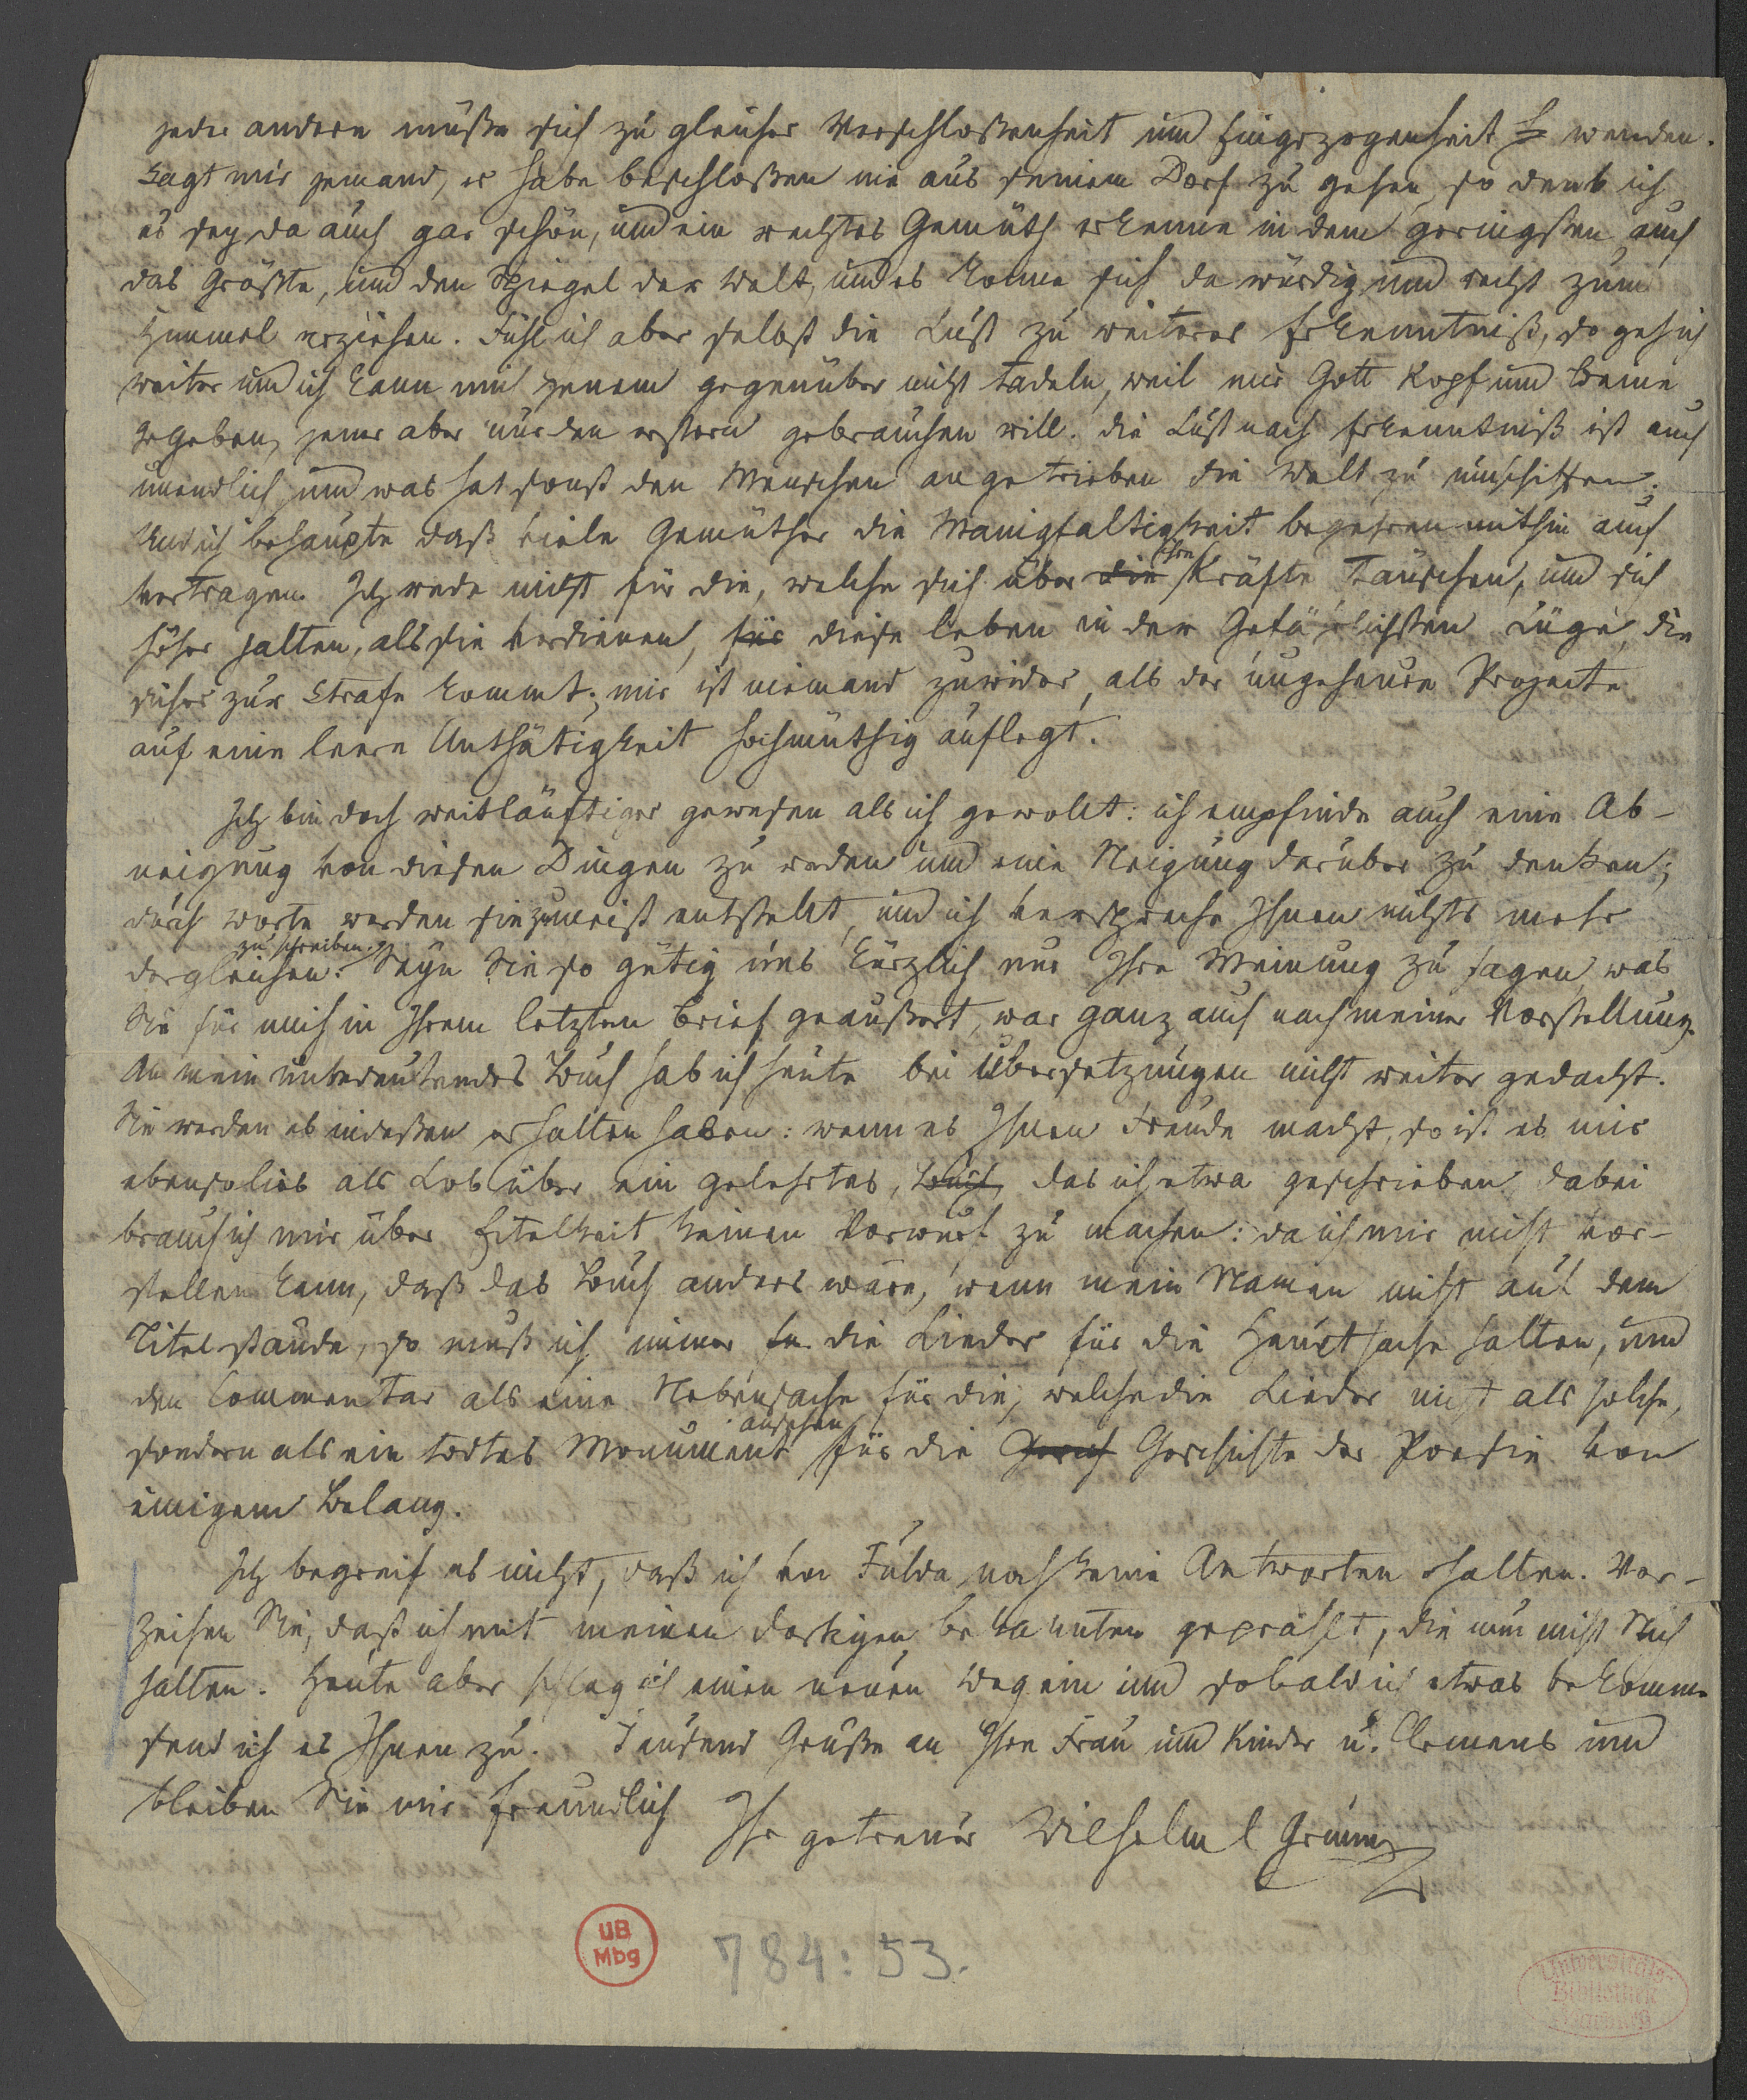 jeder andere müße sich zu gleicher Verschloßenheit und Eingezogenheit wenden.
Sagt mir jemand, er habe beschloßen nie aus seinem Dorf zu gehen, so denk ich
es sey da auch gar schön, und ein rechtes Gemüth erkenne in dem geringsten auch
das Größte, und den Spiegel der Welt, und es könne sich da würdig und recht zum
Himmel erziehen. Fühl ich aber selbst die Lust zu weiterer Erkenntniß, so geh ich
weiter und ich kann mich jenem gegenüber nicht tadeln, weil mir Gott Kopf und Beine
gegeben, jener aber nur den erstern gebrauchen will. die Lust nach Erkenntniß ist auch
unendlich und was hat sonst den Menschen angetrieben die Welt zu umschiffen.
Und ich behaupte daß viele Gemüther die Manigfaltigkeit begehren mithin auch
vertragen. Ich rede nicht für die, welche sich über die ihre Kräfte täuschen, und sich
höher halten, als sie verdienen, für diese leben in der Gefährlichsten Lüge, die
sicher zur Strafe kommt; mir ist niemand zuwider, als der ungeheure Projecte
auf eine leere Unthätigkeit hochmüthig auflegt.
Ich bin doch weitläuftiger gewesen als ich gewollt: ich empfinde auch eine Ab-
neigung von diesen Dingen zu reden und eine Neigung darüber zu denken;
durch Worte werden sie zumeist entstellt, und ich verspreche Ihnen nichts mehr
dergleichen zu schreiben. Seyn Sie so gütig uns kürzlich nur Ihre Meinung zu sagen, was
Sie für mich in Ihrem letzten Brief geäußert, war ganz auch nach meiner Vorstellung.
An mein unbedeutendes Buch hab ich heute bei Übersetzungen nicht weiter gedacht.
Sie werden es indeßen erhalten haben: wenn es Ihnen Freude macht, so ist es mir
ebenso lieb als Lob über ein gelehrtes, Buch, das ich etwa geschrieben, dabei
brauch ich mir über Eitelkeit keinen Vorwurf zu machen: da ich mir nicht vor-
stellen kann, daß das Buch anders wäre, wenn mein Namen nicht auf dem
Titel stände, so muß ich immer die Lieder für die Hauptsache halten, und
den Commentar als eine Nebensache für die, welche die Lieder nicht als solche,
sondern als ein todtes Monument ansehen für die Gesch Geschichte der Poesie von
einigem Belang.
Ich begreif es nicht, daß ich von Fulda noch keine Antworten erhalten. Ver-
zeihen Sie, daß ich mit meinen dortigen bekannten geprahlt, die nun nicht Stich
halten. Heute aber schlag ich einen neuen Weg ein und sobald ich etwas bekomme
send ich es Ihnen zu. Tausend Grüße an Ihre Frau und Kinder u. Clemens und
bleiben Sie mir freundlich
Ihr getreuer Wilhelm C Grimm
UB
Mbg
784:53.
Universitäts-
Bibliothek
Marburg